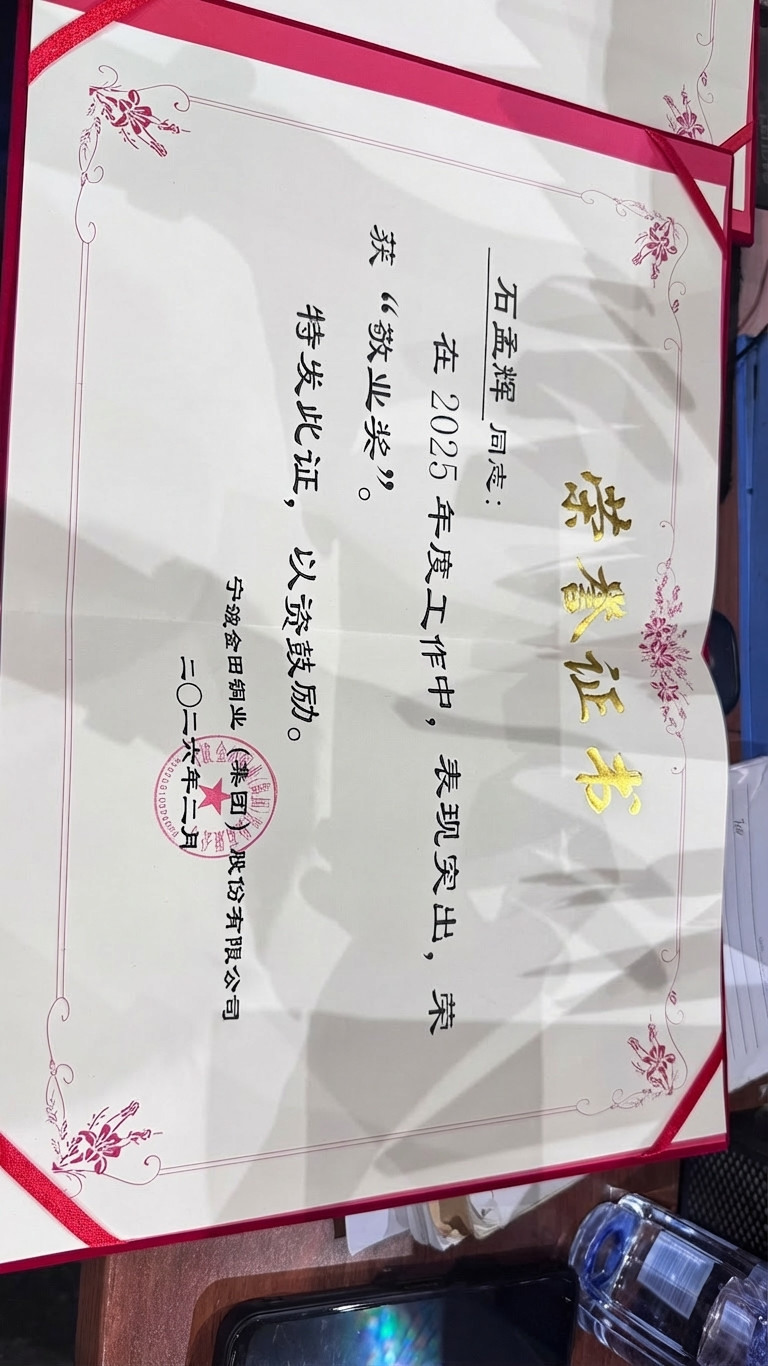 荣誉证书
石孟辉 同志：
在 2025 年度工作中，表现突出，荣
获“敬业奖”。
特发此证，以资鼓励。
宁波金田铜业（集团）股份有限公司
二〇二六年二月